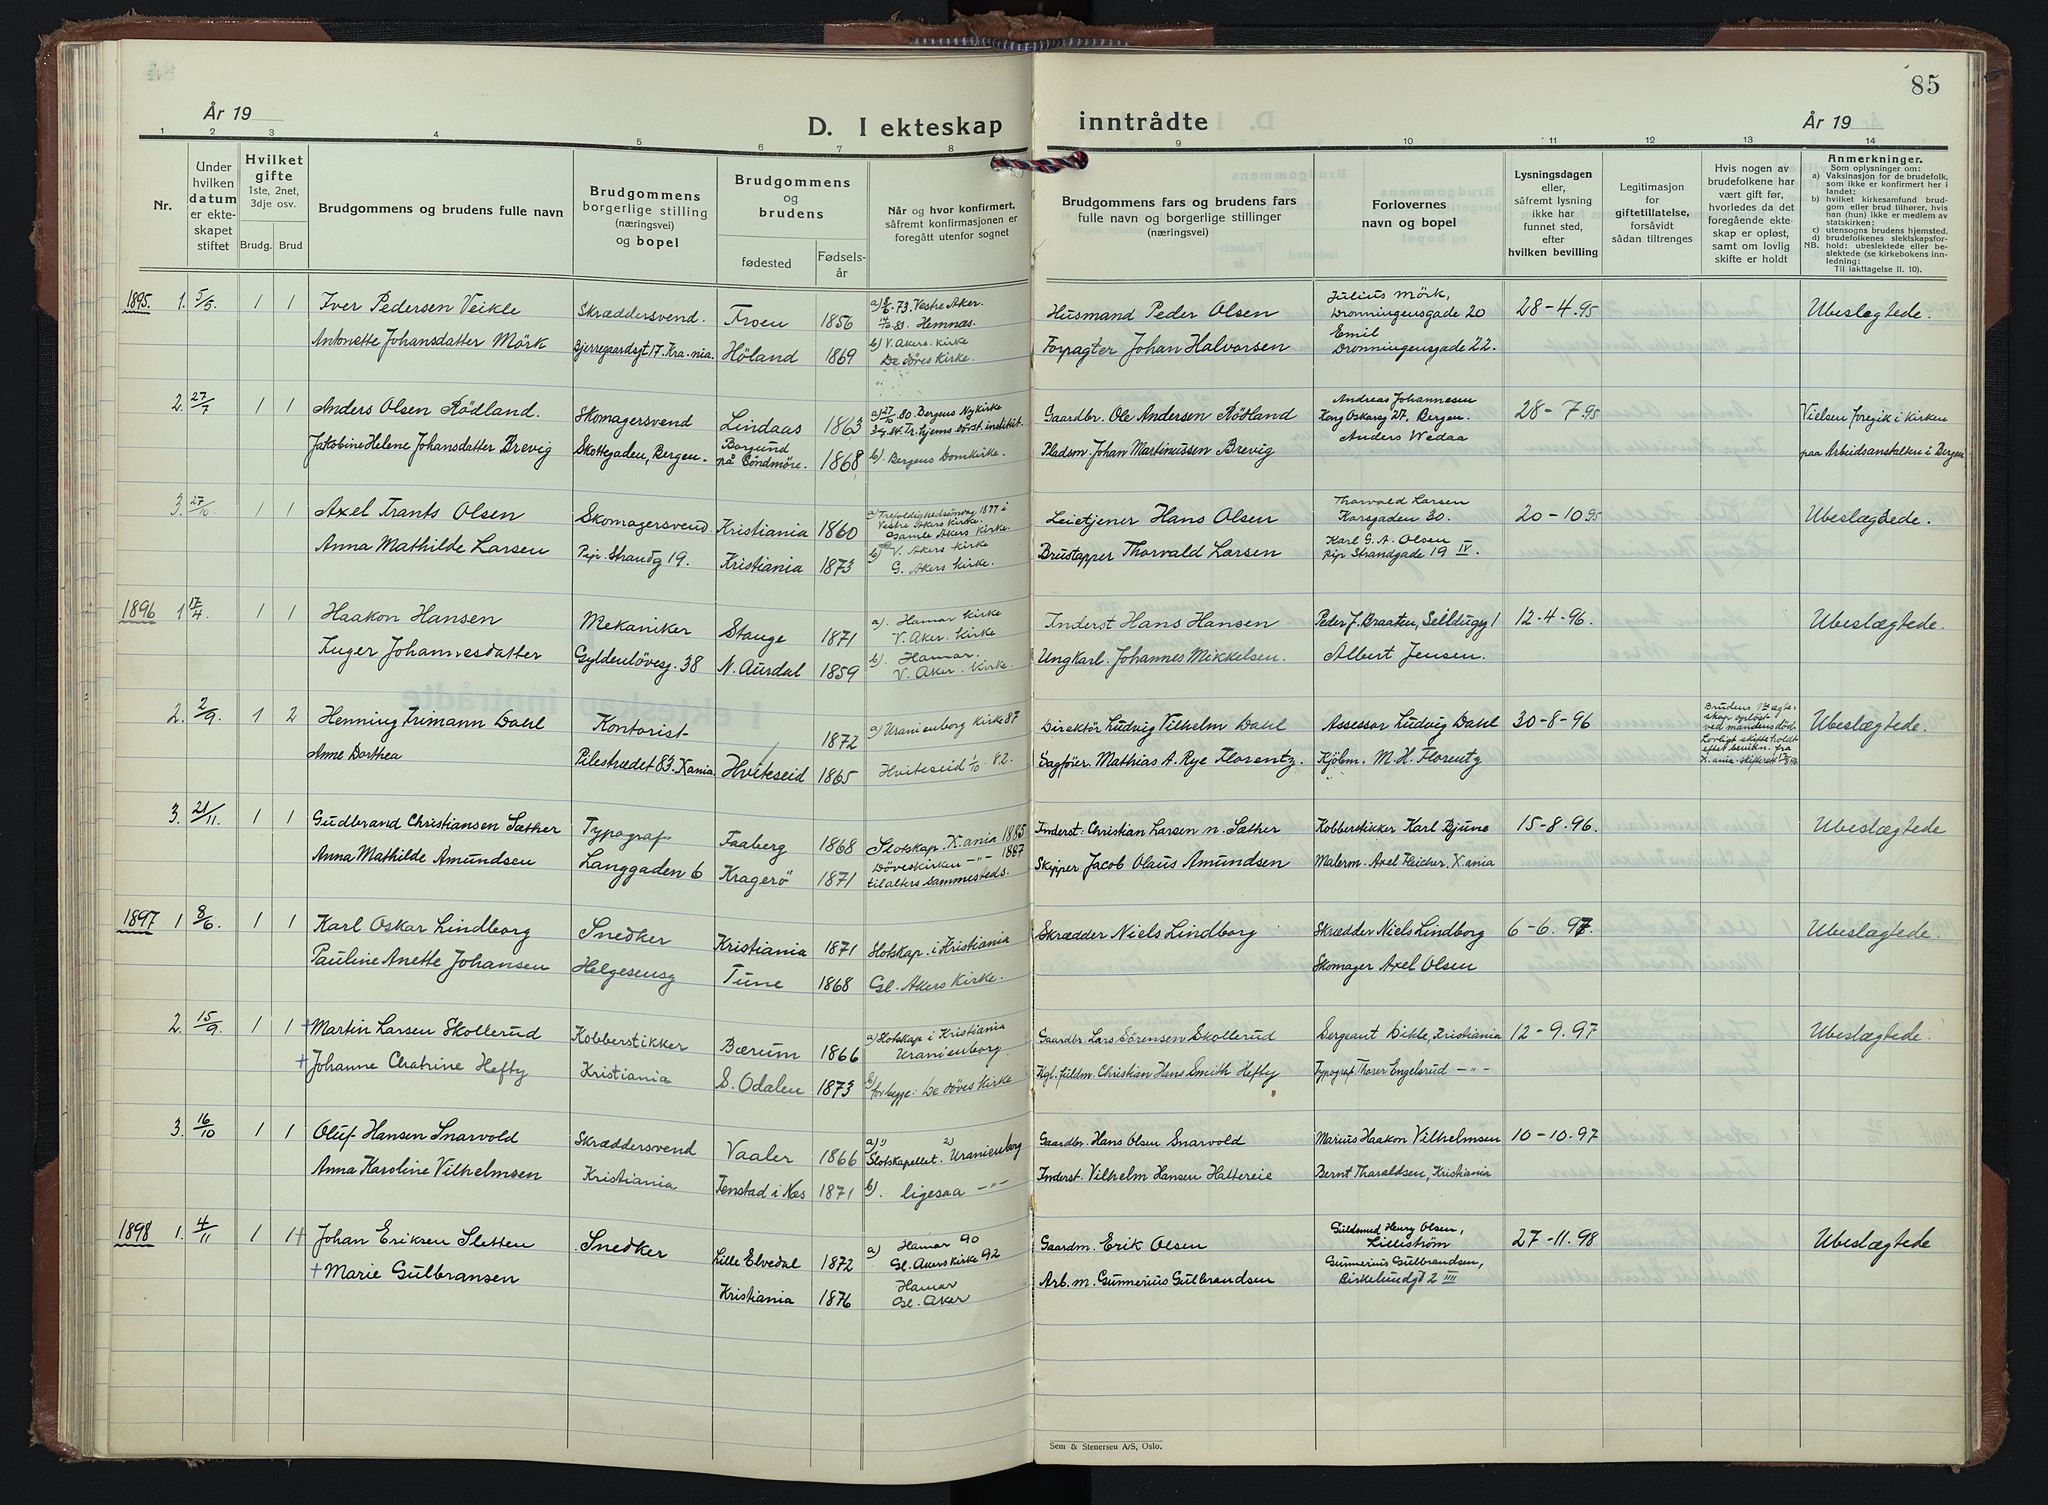 85
År 19
D. I ekteskap
inntrådte
År 19
1 2 3 4 5 6 7 8 9 10 11 12 13 14
Nr.
Under hvilken datum er ekteskapet stiftet
Hvilket gifte
1ste, 2net, 3dje osv.
Brudg. Brud
Brudgommens og brudens fulle navn
Brudgommens borgerlige stilling (næringsvei) og bopel
Brudgommens og brudens
fødested
Fødselsår
Når og hvor konfirmert, såfremt konfirmasjonen er foregått utenfor sognet
Brudgommens fars og brudens fars fulle navn og borgerlige stillinger (næringsvei)
Forlovernes navn og bopel
Lysningsdagen eller, såfremt lysning ikke har funnet sted, efter hvilken bevilling
Legitimasjon for giftetillatelse, forsåvidt sådan tiltrenges
Hvis nogen av brudefolkene har vært gift før, hvorledes da det foregående ekteskap er opløst, samt om lovlig skifte er holdt
Anmerkninger.
Som oplysninger om:
a) Vaksinasjon for de brudefolk, som ikke er konfirmert her i landet;
b) hvilket kirkesamfund brudgom eller brud tilhører, hvis han (hun) ikke er medlem av statskirken;
c) utensogns brudens hjemsted.
d) brudefolkenes slektskapsforhold: ubeslektede eller beslektede (se kirkebokens innledning:
NB.
Til iakttagelse II. 10).
1895. 1. 5/5 1 1 Iver Pedersen Veikle Skræddersvend. Froen 1856 a) 8/6.73 Vestre Aker. Husmand Peder Olsen Julius Mörk, Dronningensgade 20 28-4.95 Ubeslægtede.
.83. Hemnæs.
Antonette Johansdatter Mörk Bjerregaardsgt 17. Kra-nia. Höland 1869 b) V. Akers. kirke De döves Kirke. Forpagter Johan Halvorsen Emil Dronningensgade 22.
2. 27/7 1 1 Anders Olsen Rödland. Skomagersvend Lindaas 1863 a) 27/10 80. Bergens Nykirke Gaardbr. Ole Andersen Rödland Andreas Johannesen Kong Oskarsg 27, Bergen. 28-7.95 Vielsen foregik i kirken
84. Tr.hjems dövst. institut.
Jakobine Helene Johansdatter Brevig Skottegaden, Bergen. Borgund på Söndmöre. 1868 b). Bergens Domkirke. Pladsm. Johan Martinussen Brevig Anders Wedaa paa Arbeidsanstalten i Bergen
3. 27/10 1 1 Axel Trants Olsen Skomagersvend Kristiania 1860 a) Trefoldighedsöndag 1877 i Vestre Akers Kirke. Gamle Akers Kirke. Leietjener Hans Olsen Thorvald Larsen Korsgaden 30. 20-10.95 Ubeslægtede.
Anna Mathilde Larsen Pip. Strandg 19. Kristiania 1873 b) V. Akers Kirke G. Akers Kirke. Brustapper Thorvald Larsen Karl G. A. Olsen Pip Strandgade 19 IV.
1896 1 17/4 1 1 Haakon Hansen Mekaniker Stange 1871 a). Hamar Kirke V. Aker. Kirke Inderst Hans Hansen Peder J. Braaten, Seildugsg 1 12-4-96. Ubeslægtede.
Inger Johannesdatter Gyldenlövesg. 38 N. Aurdal 1859 b). Hamar. V. Aker. Kirke. Ungkarl. Johannes Mikkelsen. Albert Jensen.
2. 2/9. 1 2 Henning Trimann Dahl Kontorist 1872 a) Uranienborg Kirke 87 Direktör Ludvig Vilhelm Dahl Assessor Ludvig Dahl 30-8-96 Brudens 1ste ægteskap oplöst ved mandens död. Lovligt skifte holdt efter bevidn. fra X.ania. skifterett Ubeslægtede.
Anne Dorthea Pilestrædet 83. Xania. Hviteseid 1865 Hviteseid 1/10. 82. Sagförer. Mathias A. Rye Florentz. Kjöbm. M. H. Florentz
3. 21/11. 1 1 Gudbrand Christiansen Sæther Typograf Faaberg 1868 Slotskap. X.ania 1885 Inderst. Christian Larsen n. Sæther Kobberstikker Karl Bjune 15-8.96. Ubeslægtede
Döveskirken -"- 1887
Anna Mathilde Amundsen Langgaden 6 Kragerö 1871 til alters sammesteds. Skipper Jacob Olaus Amundsen Malerm. Axel Fleicher. X.ania
1897 1 8/6. 1 1 Karl Oskar Lindborg Snedker Kristiania 1871 Slotskap. i Kristiania Skrædder Niels Lindborg Skrædder Niels Lindborg 6-6.97. Ubeslægtede.
Pauline Anette Johansen Helgesensg Tune 1868 Gl. Akers Kirke. Skomager Axel Olsen
2. 15/9. 1 1 + Martin Larsen Skollerud Kobberstikker Bærum 1866 a) Slotskap i Kristiania Uranienborg. Gaardbr. Lars Sörensen Skollerud Sergeant Dikle, Kristiania 12-9.97 Ubeslægtede.
+ Johanne Chatrine Hefty Kristiania S. Odalen 1873 for begge: De döves Kirke Kgl. fuldm. Christian Hans Smith Hefty Typograf Thorer Engelsrud -"-
3. 16/10 1 1 Oluf Hansen Snarvold Skræddersvend Vaaler 1866 a) 1) 2) Slotskapellet. Uranienborg Gaardbr. Hans Olsen Snarvold Marius Haakon Vilhelmsen 10-10.97
Anna Karoline Vilhelmsen Kristiania Tenstad i Næs 1871 b). ligesaa -"- Inderst. Vilhelm Hansen Haltereie Bernt Tharaldsen, Kristiania
1898 1. 4/11 1 1+ Johan Eriksen Sletten Snedker Lille Elvedal 1872 a) Hamar 90 Gl. Akers Kirke 92 Gaardm. Erik Olsen Guldsmed Henry Olsen, Lilleström 27-11.98 Ubeslægtede
+ Marie Gulbransen Kristiania 1876 Hamar Gl. Aker Arb.m. Gunnerius Gulbrandsen Gunnerius Gulbrandsen, Birkelundgt 2 IIII
Sem & Stenersen A/S, Oslo.